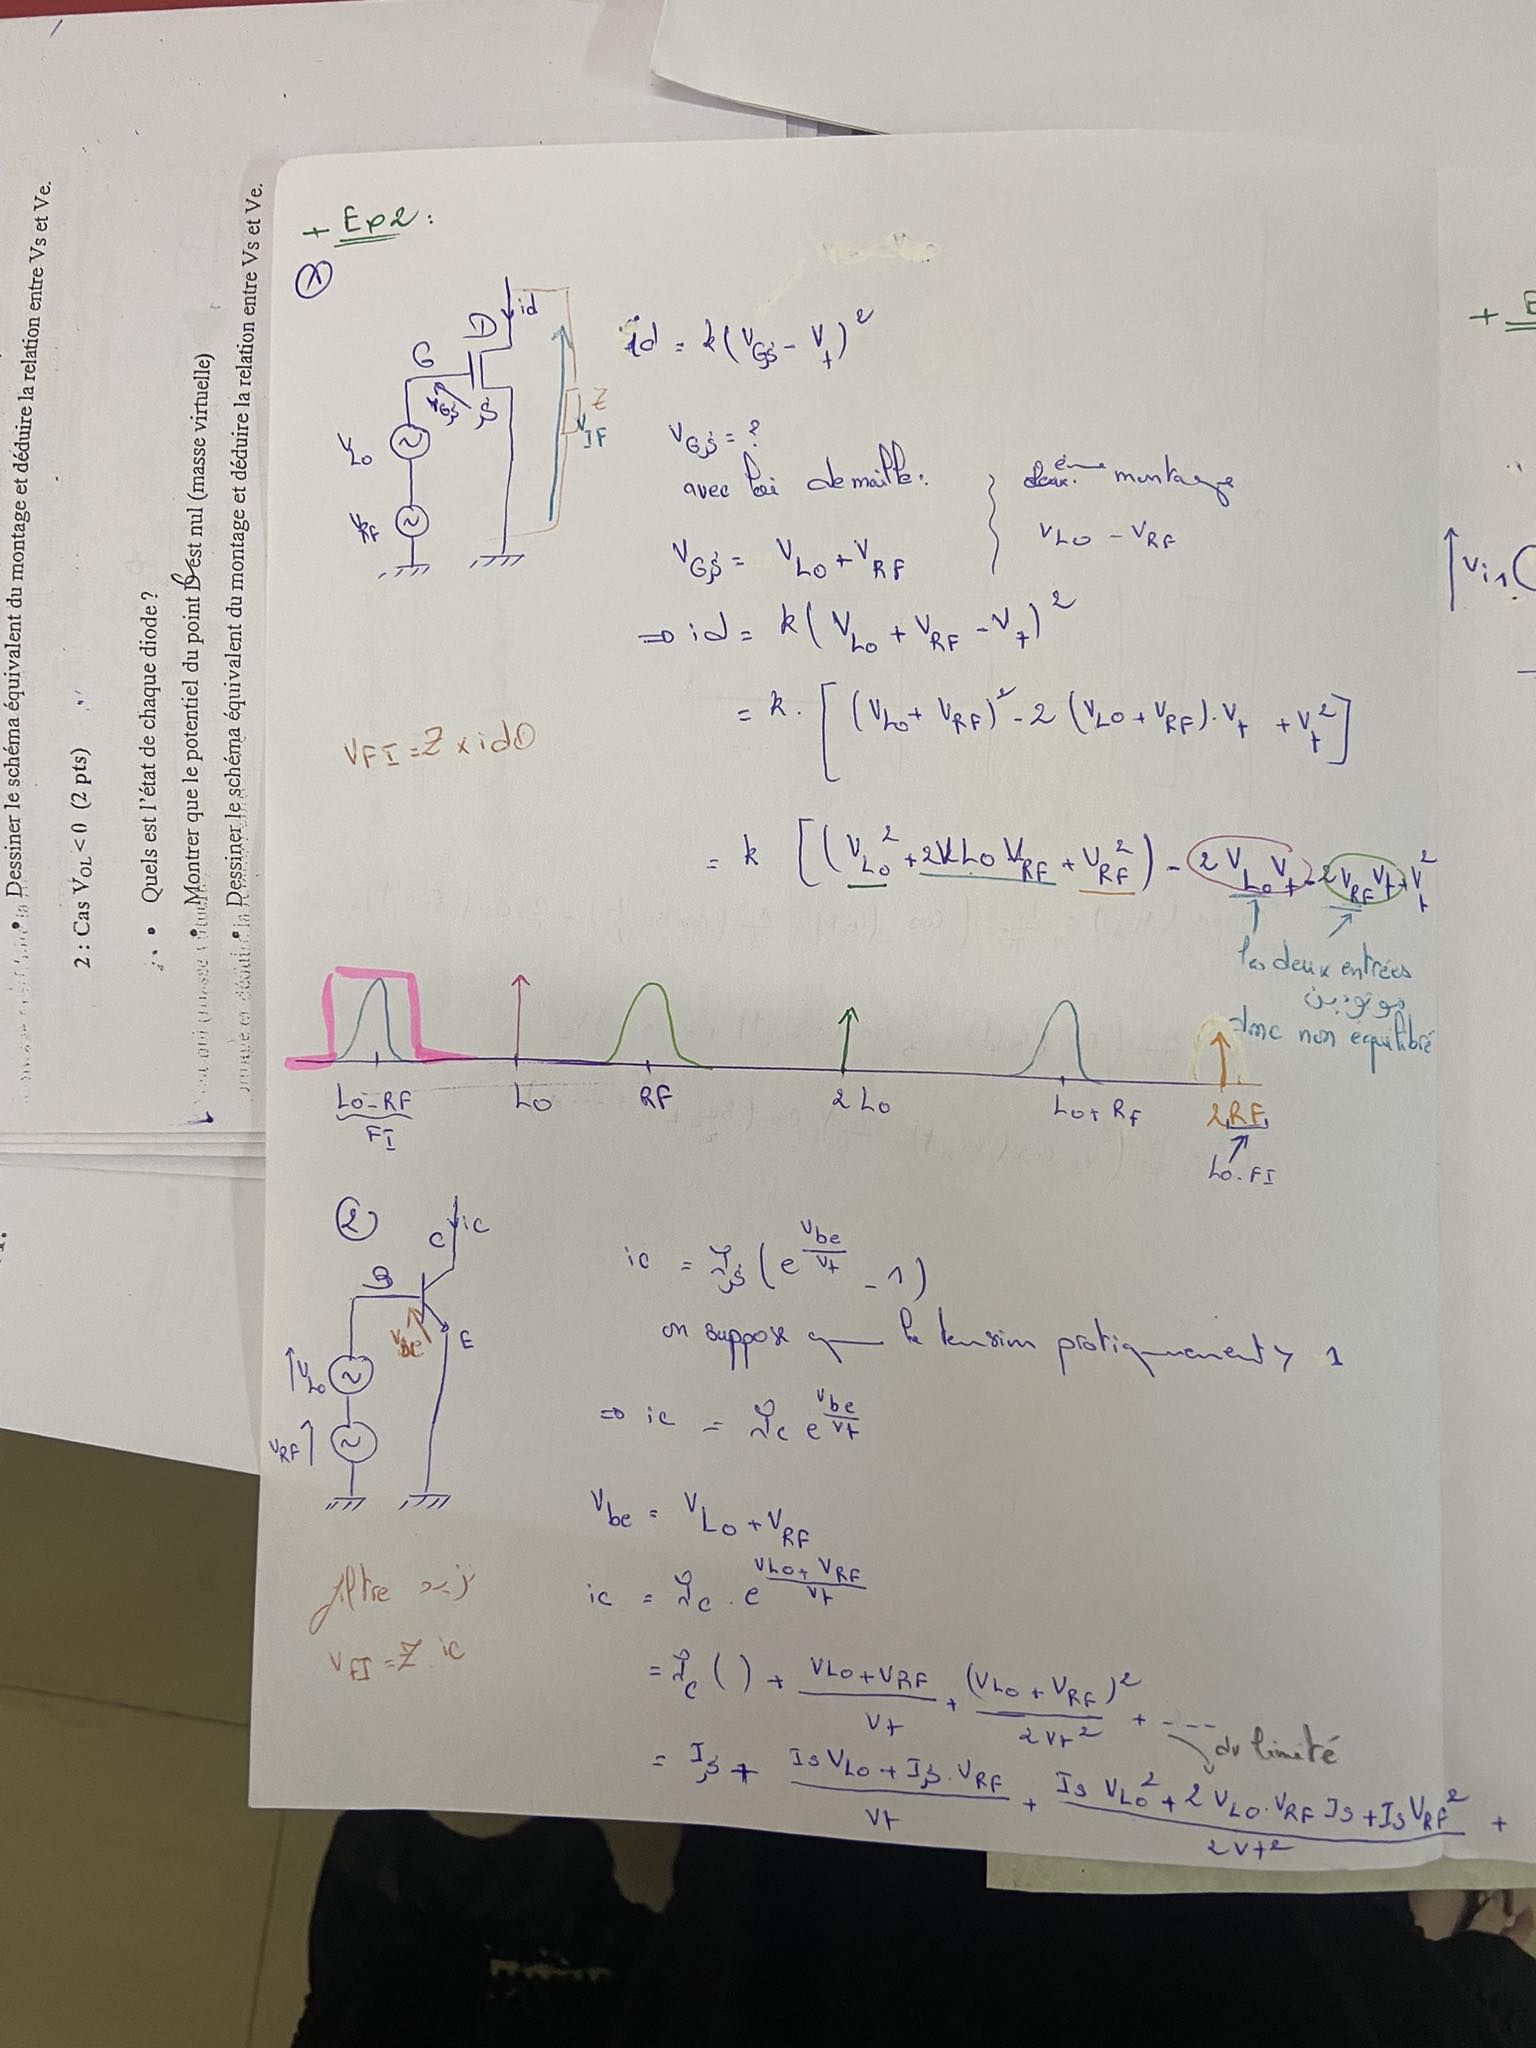 Dessiner le schéma équivalent du montage et déduire la relation entre Vs et Ve.
2 : Cas V_OL < 0 (2 pts)
• Quels est l'état de chaque diode ?
• Montrer que le potentiel du point B est nul (masse virtuelle)
Dessiner le schéma équivalent du montage et déduire la relation entre Vs et Ve.
+ Ex2 :
①
id
D
G
V_GS
S
Z
V_IF
V_LO
V_RF
id = k(V_GS - V_t)²
V_GS = ?
avec loi de maille :
V_GS = V_LO + V_RF
deuxème montage
V_LO - V_RF
⇒ id = k(V_LO + V_RF - V_t)²
= k · [(V_LO + V_RF)² - 2(V_LO + V_RF)·V_t + V_t²]
V_FI = Z x id
= k [(V_LO² + 2V_LO V_RF + V_RF²) - 2V_LO V_t - 2V_RF V_t + V_t²
les deux entrées
موجودين
donc non équilibré
LO-RF
FI
LO
RF
2 LO
LO + RF
2RF
LO-FI
②
C
ic
B
V_BE
E
V_LO
V_RF
ic = I_S (e^(Vbe/Vt) - 1)
on suppose que la tension pratiquement > 1
⇒ ic = I_C e^(Vbe/Vt)
V_be = V_LO + V_RF
ic = I_C . e^((V_LO + V_RF)/Vt)
filtre
V_FI = Z . ic
= I_C ( ) + (V_LO + V_RF)/Vt + (V_LO + V_RF)²/2Vt² + ----
dv limité
= I_S + (I_S V_LO + I_S . V_RF)/Vt + (I_S V_LO² + 2 V_LO . V_RF I_S + I_S V_RF²)/2Vt² +
+ E
V_i1